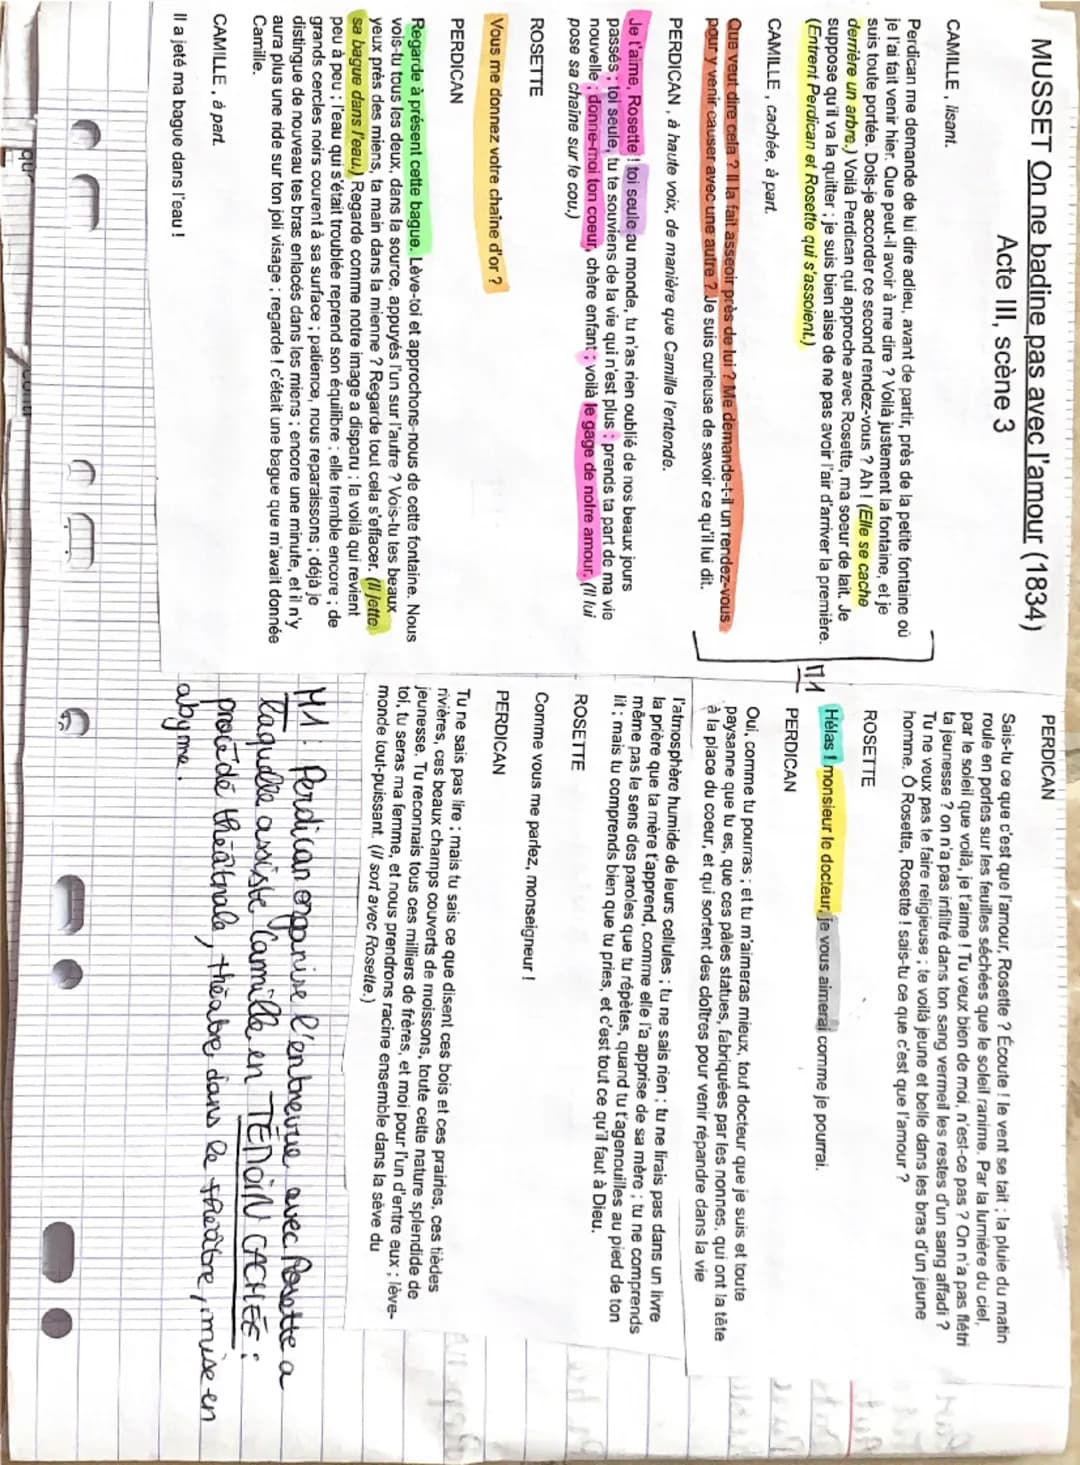 MUSSET On ne badine pas avec l'amour (1834)
Acte III, scène 3
CAMILLE , lisant.
Perdican me demande de lui dire adieu, avant de partir, près de la petite fontaine où
je l'ai fait venir hier. Que peut-il avoir à me dire ? Voilà justement la fontaine, et je
suis toute portée. Dois-je accorder ce second rendez-vous ? Ah ! (Elle se cache
derrière un arbre.) Voilà Perdican qui approche avec Rosette, ma soeur de lait. Je
suppose qu'il va la quitter ; je suis bien aise de ne pas avoir l'air d'arriver la première.
(Entrent Perdican et Rosette qui s'assoient.)
CAMILLE , cachée, à part.
Que veut dire cela ? Il la fait asseoir près de lui ? Me demande-t-il un rendez-vous
pour y venir causer avec une autre ? Je suis curieuse de savoir ce qu'il lui dit.
PERDICAN , à haute voix, de manière que Camille l'entende.
Je t'aime, Rosette ! toi seule au monde, tu n'as rien oublié de nos beaux jours
passés ; toi seule, tu te souviens de la vie qui n'est plus ; prends ta part de ma vie
nouvelle ; donne-moi ton coeur, chère enfant ; voilà le gage de notre amour. (Il lui
pose sa chaîne sur le cou.)
ROSETTE
Vous me donnez votre chaîne d'or ?
PERDICAN
Regarde à présent cette bague. Lève-toi et approchons-nous de cette fontaine. Nous
vois-tu tous les deux, dans la source, appuyés l'un sur l'autre ? Vois-tu tes beaux
yeux près des miens, ta main dans la mienne ? Regarde tout cela s'effacer. (Il jette
sa bague dans l'eau.) Regarde comme notre image a disparu ; la voilà qui revient
peu à peu ; l'eau qui s'était troublée reprend son équilibre ; elle tremble encore ; de
grands cercles noirs courent à sa surface ; patience, nous reparaissons ; déjà je
distingue de nouveau tes bras enlacés dans les miens ; encore une minute, et il n'y
aura plus une ride sur ton joli visage ; regarde ! c'était une bague que m'avait donnée
Camille.
CAMILLE , à part.
Il a jeté ma bague dans l'eau !
PERDICAN
Sais-tu ce que c'est que l'amour, Rosette ? Écoute ! le vent se tait ; la pluie du matin
roule en perles sur les feuilles séchées que le soleil ranime. Par la lumière du ciel,
par le soleil que voilà, je t'aime ! Tu veux bien de moi, n'est-ce pas ? On n'a pas flétri
ta jeunesse ? on n'a pas infiltré dans ton sang vermeil les restes d'un sang affadi ?
Tu ne veux pas te faire religieuse ; te voilà jeune et belle dans les bras d'un jeune
homme. Ô Rosette, Rosette ! sais-tu ce que c'est que l'amour ?
ROSETTE
M1
Hélas ! monsieur le docteur, je vous aimerai comme je pourrai.
PERDICAN
Oui, comme tu pourras ; et tu m'aimeras mieux, tout docteur que je suis et toute
paysanne que tu es, que ces pâles statues, fabriquées par les nonnes, qui ont la tête
à la place du coeur, et qui sortent des cloîtres pour venir répandre dans la vie
l'atmosphère humide de leurs cellules ; tu ne sais rien ; tu ne lirais pas dans un livre
la prière que ta mère t'apprend, comme elle l'a apprise de sa mère ; tu ne comprends
même pas le sens des paroles que tu répètes, quand tu t'agenouilles au pied de ton
lit ; mais tu comprends bien que tu pries, et c'est tout ce qu'il faut à Dieu.
ROSETTE
Comme vous me parlez, monseigneur !
PERDICAN
Tu ne sais pas lire ; mais tu sais ce que disent ces bois et ces prairies, ces tièdes
rivières, ces beaux champs couverts de moissons, toute cette nature splendide de
jeunesse. Tu reconnais tous ces milliers de frères, et moi pour l'un d'entre eux ; lève-
toi, tu seras ma femme, et nous prendrons racine ensemble dans la sève du
monde tout-puissant. (Il sort avec Rosette.)
M1 : Perdican organise l'entrevue avec Rosette a
laquelle assiste Camille en TÉMOIN CACHÉE :
procédé théâtrale, théatre dans le théatre, mise en
abyme.